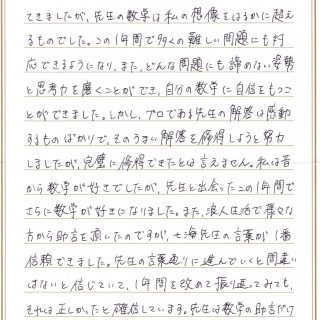 できましたが、先生の数学は私の想像をはるかに超え
るものでした。この1年間で多くの難しい問題にも対
応できるようになり、また、どんな問題にも諦めない姿勢
と思考力を磨くことができ、自分の数学に自信をもつこ
とができました。しかし、プロである先生の解答は感動
するものばかりで、そのうまい解答を修得しようと努力
しましたが、完璧に修得できたとは言えません。私は昔
から数学が好きでしたが、先生と出会ったこの1年間で
さらに数学が好きになりました。また、浪人生活で様々な
方から助言を頂いたのですが、七海先生の言葉が1番
信頼できました。先生の言葉通りに進んでいくと間違い
はないと信じていて、1年間を改めて振り返ってみても、
それは正しかったと確信しています。先生は数学の助言だけ